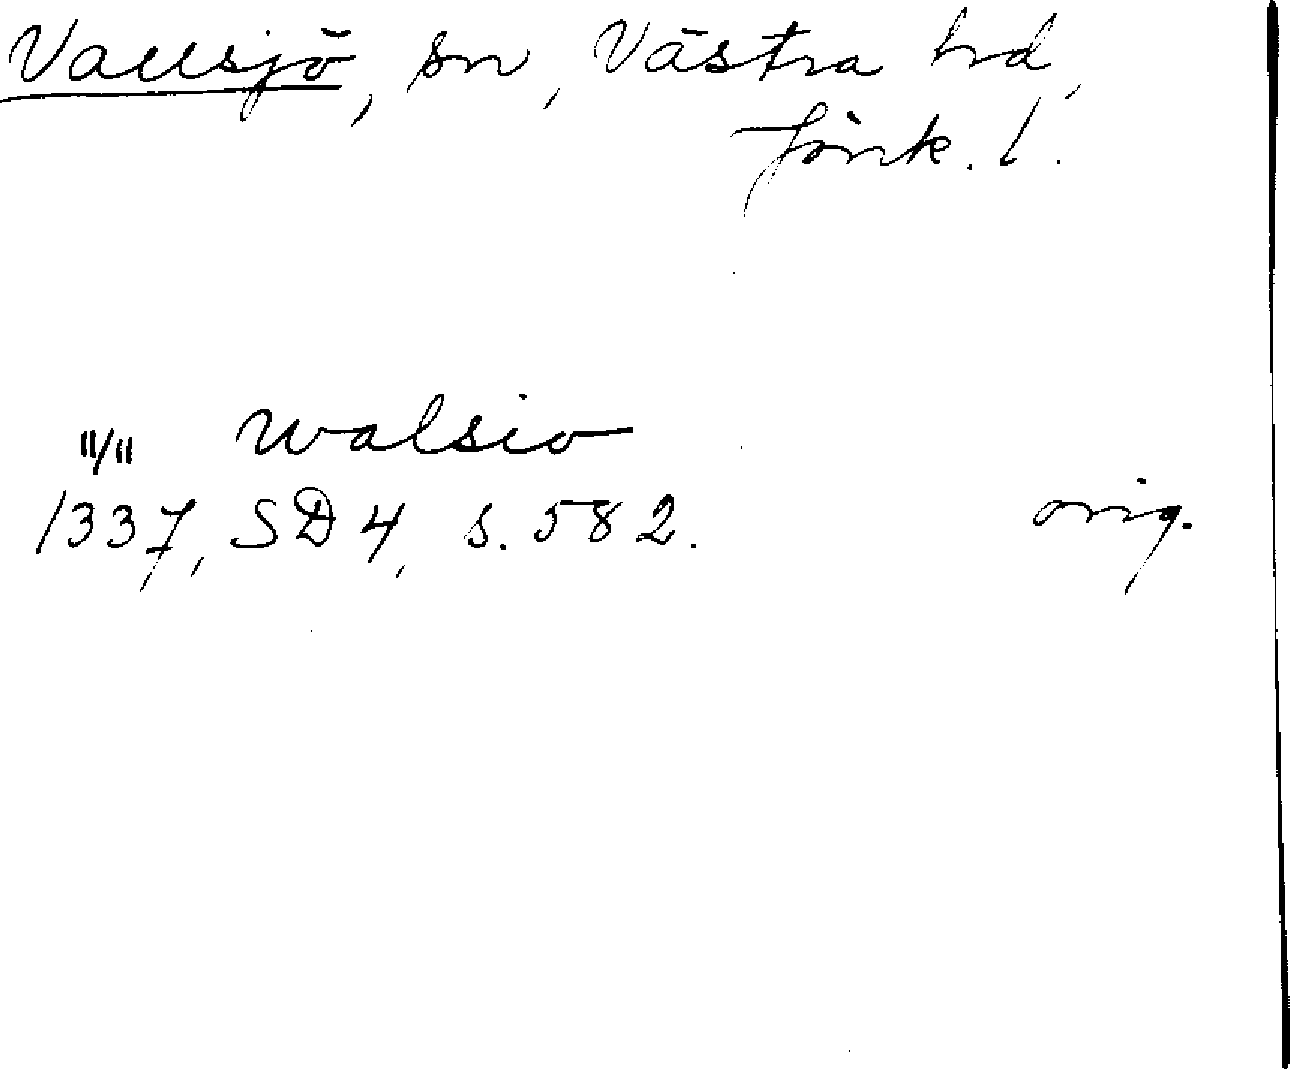 Vallsjö, sn, Västra hd,
Jönk. l.
11/11 Walsio
1337, SD 4, s. 582. orig.